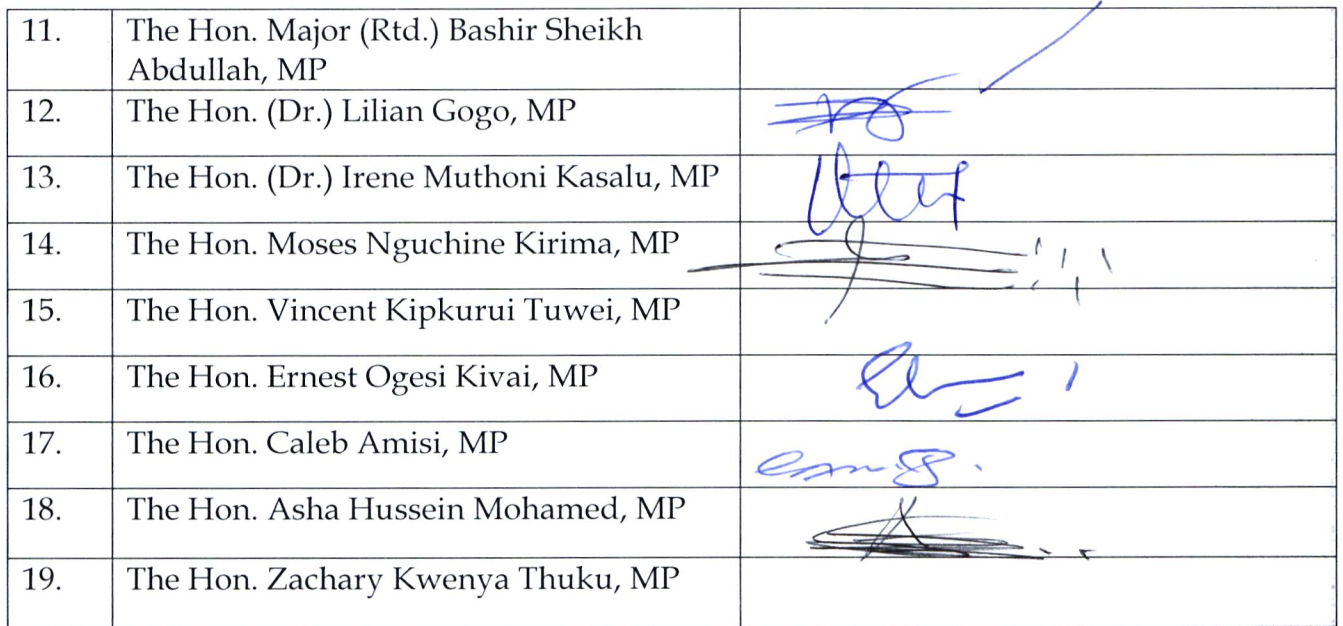 11. The Hon. Major (Rtd.) Bashir Sheikh
Abdullah, MP
12. The Hon. (Dr.) Lilian Gogo, MP
13. The Hon. (Dr.) Irene Muthoni Kasalu, MP
14. The Hon. Moses Nguchine Kirima, MP
15. The Hon. Vincent Kipkurui Tuwei, MP
16. The Hon. Ernest Ogesi Kivai, MP
17. The Hon. Caleb Amisi, MP
18. The Hon. Asha Hussein Mohamed, MP
19. The Hon. Zachary Kwenya Thuku, MP